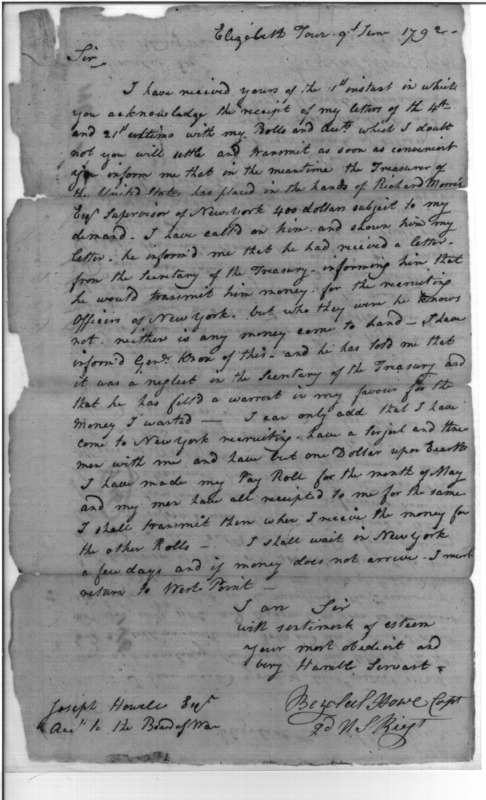 Elizabeth Town 9d June 1792 -
Sir
I have received yours of the 1st instant in which
you acknowledge the receipt of my letters of the 4th
and 21st ultimo with my Rolls and Acts. which I doubt
not you will settle and transmit as soon as convenient
you inform me that in the meantime the Treasurer of
the United States has placed in the hands of Richard Morris
Esqr Supervisor of New York 400 dollars subject to my
demand. I have call'd on him and shown him my
letter. he inform'd me that he had received a letter
from the Secretary of the Treasury - informing him that
he would transmit him money for the recruiting
Officers of New York. but who they were he knows
not. neither is any money come to hand - I have
inform'd Genl. Knox of this - and he has told me that
it was a neglect in the Secretary of the Treasury and
that he has fill'd a warrent in my favour for the
Money I wanted — I can only add that I have
come to New York recruiting. have a serjent and three
men with me and have but one Dollar upon Earth
I have made my Pay Roll for the month of May
and my men have all receipted to me for the same
I shall transmit them when I receive the money for
the other Rolls — I shall wait in New York
a few days and if money does not arrive - I must
return to West Point —
I am Sir
with sentiments of esteem
your most obedient and
very Humble Servant
Joseph Howell Esqr
Act to the Board of War
Bezaleel Howe Capt
2d U S Regt